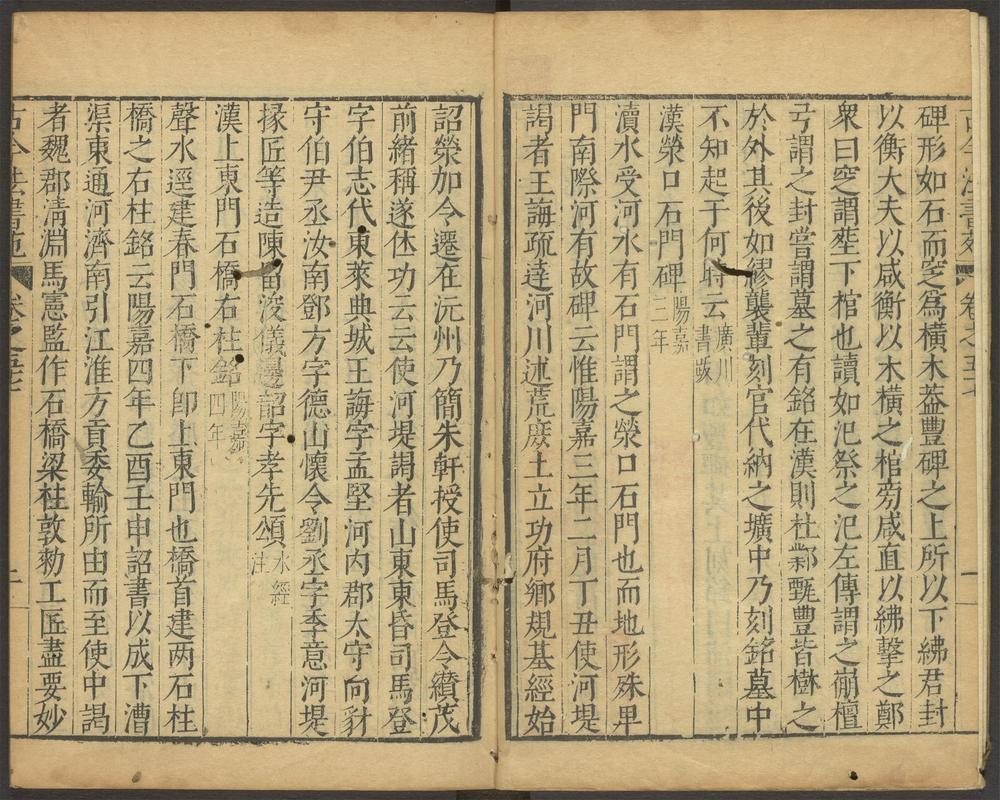 古今法書苑 卷之五十
碑形如石而空爲橫木葢豐碑之上所以下紼君封
以衡大夫以咸衡以木橫之棺旁咸直以紼擊之鄭
衆曰窆謂塟下棺也讀如氾祭之氾左傳謂之㴼檀
弓謂之封嘗謂墓之有銘在漢則杜鄴甄豐皆樹之
於外其後如繆襲輩刻官代納之壙中乃刻銘墓中
不知起于何時云廣川書䟦
漢滎口石門碑陽嘉三年
瀆水受河水有石門謂之滎口石門也而地形殊卑
門南際河有故碑云惟陽嘉三年二月丁丑使河堤
謁者王誨疏達河川述荒庻土立功府鄉規基經始
詔滎加令遷在沅州乃簡朱軒授使司馬登令纘茂
前緒稱遂休功云云使河堤謁者山東東昏司馬登
字伯志代東萊典城王誨字孟堅河內郡太守向豺
守伯尹丞汝南鄧方字德山懷令劉丞字季意河堤
掾匠等造陳留浚儀邊韶字孝先頌水經注
漢上東門石橋右柱銘陽嘉四年
聲水逕建春門石橋下卽上東門也橋首建两石柱
橋之右柱銘云陽嘉四年乙酉壬申詔書以成下漕
渠東通河濟南引江淮方貢委輸所由而至使中謁
者魏郡清淵馬憲監作石橋梁柱敦勑工匠盡要妙
古今法書苑 卷之五十 二